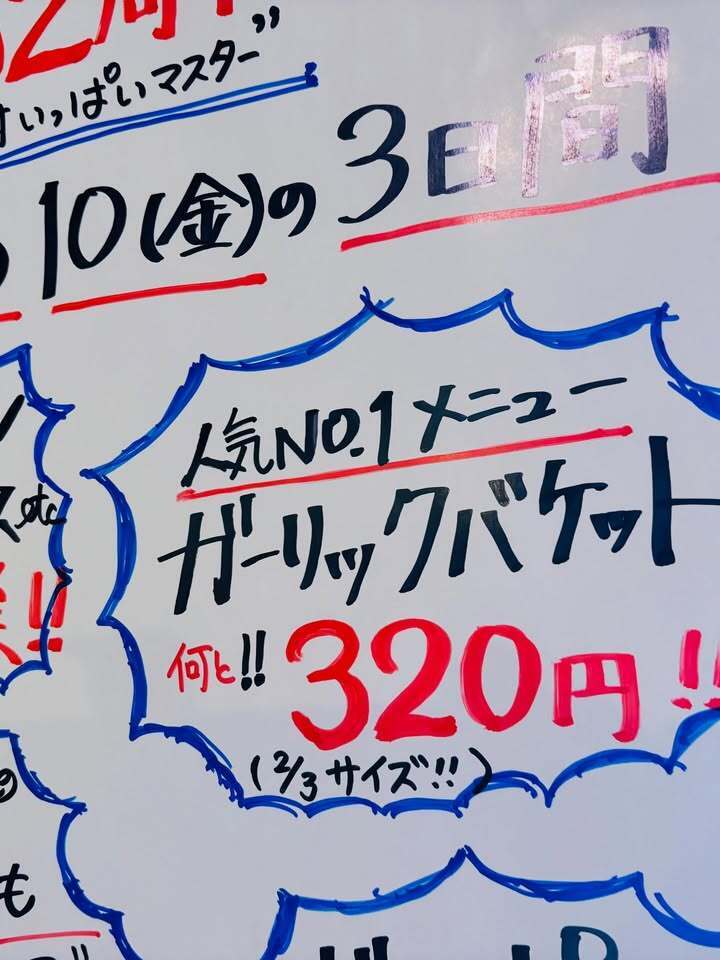 いっぱいマスター”
10(金)の3日間
etc
人気NO.1メニュー
ガーリックバケット
何と!! 320円!!
(2/3サイズ!!)
も